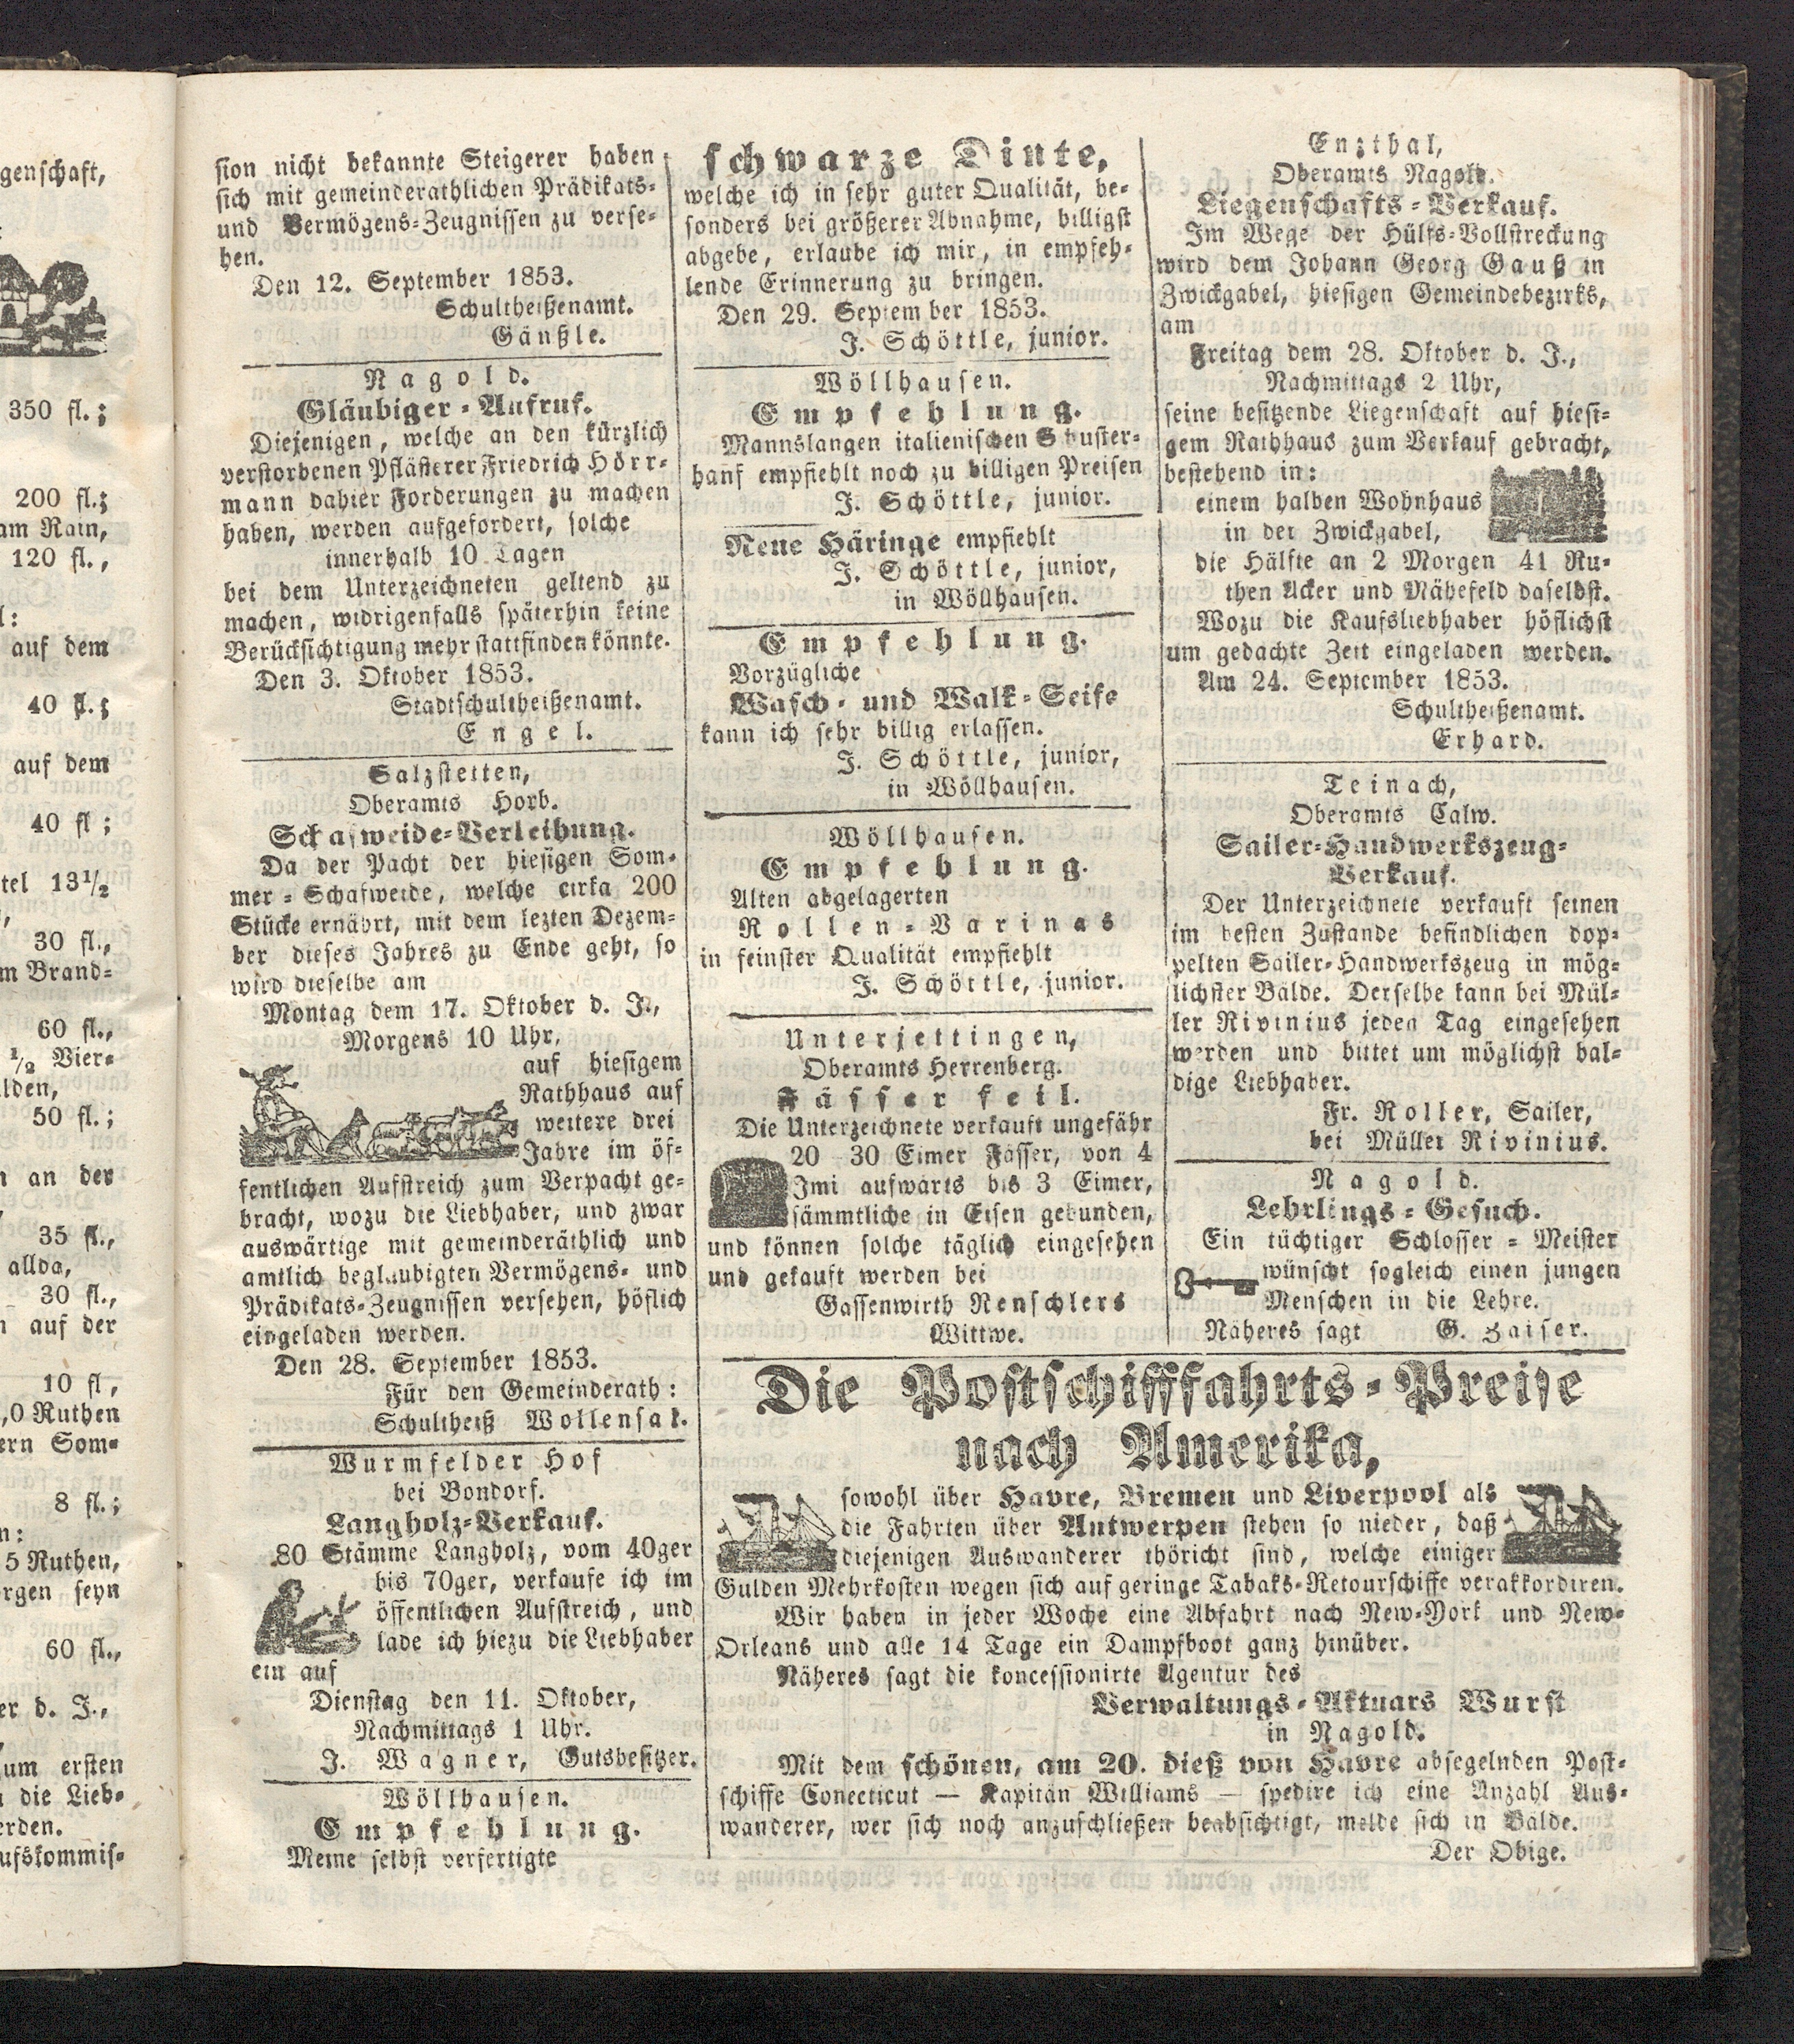 genschaft,
350 fl.;
200 fl.;
am Rain,
120 fl.,
l:
auf dem
40 fl.;
auf dem
40 fl ;
tel 13½
30 fl.,
m Brand=
60 fl.,
½ Vier=
lden,
50 fl.;
n an der
35 fl.,
allda,
30 fl.,
n auf der
10 fl,
,0 Ruthen
ern Som=
8 fl.;
n:
5 Ruthen,
orgen seyn
60 fl.,
er d. J.,
zum ersten
die Lieb=
erden.
ufskommis=
sion nicht bekannte Steigerer haben
sich mit gemeinderathlichen Prädikats=
und Vermögens=Zeugnissen zu verse=
hen.
Den 12. September 1853.
Schultheißenamt.
Gänßle.
Nagold.
Gläubiger=Aufruf.
Diejenigen, welche an den kürzlich
verstorbenen Pflästerer Friedrich Hörr=
mann dahier Forderungen zu machen
haben, werden aufgefordert, solche
innerhalb 10 Tagen
bei dem Unterzeichneten geltend zu
machen, widrigenfalls späterhin keine
Berücksichtigung mehr stattfinden könnte.
Den 3. Oktober 1853.
Stadtschultheißenamt.
Engel.
Salzstetten,
Oberamts Horb.
Schafweide=Verleihung.
Da der Pacht der hiesigen Som=
mer=Schafweide, welche cirka 200
Stücke ernährt, mit dem lezten Dezem=
ber dieses Jahres zu Ende geht, so
wird dieselbe am
Montag dem 17. Oktober d. J.,
Morgens 10 Uhr,
auf hiesigem
Rathhaus auf
weitere drei
Jahre im öf=
fentlichen Aufstreich zum Verpacht ge=
bracht, wozu die Liebhaber, und zwar
auswärtige mit gemeinderäthlich und
amtlich beglaubigten Vermögens= und
Prädikats=Zeugnissen versehen, höflich
eingeladen werden.
Den 28. September 1853.
Für den Gemeinderath:
Schultheiß Wollensak.
Wurmfelder Hof
bei Bondorf.
Langholz=Verkauf.
80 Stämme Langholz, vom 40ger
bis 70ger, verkaufe ich im
öffentlichen Aufstreich, und
lade ich hiezu die Liebhaber
ein auf
Dienstag den 11. Oktober,
Nachmittags 1 Uhr.
J. Wagner, Gutsbesitzer.
Wöllhausen.
Empfehlung.
Meine selbst verfertigte
schwarze Dinte,
welche ich in sehr guter Qualität, be=
sonders bei größerer Abnahme, billigst
abgebe, erlaube ich mir, in empfeh=
lende Erinnerung zu bringen.
Den 29. September 1853.
J. Schöttle, junior.
Wöllhausen.
Empfehlung.
Mannslangen italienischen Schuster=
hanf empfiehlt noch zu billigen Preisen
J. Schöttle, junior.
Neue Häringe empfiehlt
J. Schöttle, junior,
in Wöllhausen.
Empfehlung.
Vorzügliche
Wasch= und Walk=Seife
kann ich sehr billig erlassen.
J. Schöttle, junior,
in Wöllhausen.
Wöllhausen.
Empfehlung.
Alten abgelagerten
Rollen=Varinas
in feinster Qualität empfiehlt
J. Schöttle, junior.
Unterjettingen,
Oberamts Herrenberg.
Fässer feil.
Die Unterzeichnete verkauft ungefähr
20 30 Eimer Fässer, von 4
Imi aufwärts bis 3 Eimer,
sämmtliche in Eisen gebunden,
und können solche täglich eingesehen
und gekauft werden bei
Gassenwirth Renschlers
Wittwe.
Enzthal,
Oberamts Nagold.
Liegenschafts=Verkauf.
Im Wege der Hülfs=Vollstreckung
wird dem Johann Georg Gauß in
Zwickgabel, hiesigen Gemeindebezirks,
am
Freitag dem 28. Oktober d. J.,
Nachmittags 2 Uhr,
seine besitzende Liegenschaft auf hiesi=
gem Rathhaus zum Verkauf gebracht,
bestehend in:
einem halben Wohnhaus
in der Zwickgabel,
die Hälfte an 2 Morgen 41 Ru=
then Acker und Mähefeld daselbst.
Wozu die Kaufsliebhaber höflichst
um gedachte Zeit eingeladen werden.
Am 24. September 1853.
Schultheißenamt.
Erhard.
Teinach,
Oberamts Calw.
Sailer=Handwerkszeug=
Verkauf.
Der Unterzeichnete verkauft seinen
im besten Zustande befindlichen dop=
pelten Sailer=Handwerkszeug in mög=
lichster Bälde. Derselbe kann bei Mül=
ler Rivinius jeden Tag eingesehen
werden und bittet um möglichst bal=
dige Liebhaber.
Fr. Roller, Sailer,
bei Müller Rivinius.
Nagold.
Lehrlings=Gesuch.
Ein tüchtiger Schlosser=Meister
wünscht sogleich einen jungen
Menschen in die Lehre.
Näheres sagt G. Zaiser.
Die Postschifffahrts=Preise
nach Amerika,
sowohl über Havre, Bremen und Liverpool als
die Fahrten über Antwerpen stehen so nieder, daß
diejenigen Auswanderer thöricht sind, welche einiger
Gulden Mehrkosten wegen sich auf geringe Tabaks=Retourschiffe verakkordiren.
Wir haben in jeder Woche eine Abfahrt nach New=York und New=
Orleans und alle 14 Tage ein Dampfboot ganz hinüber.
Näheres sagt die koncessionirte Agentur des
Verwaltungs=Aktuars Wurst
in Nagold.
Mit dem schönen, am 20. dieß von Havre absegelnden Post=
schiffe Conecticut — Kapitän Williams — spedire ich eine Anzahl Aus=
wanderer, wer sich noch anzuschließen beabsichtigt, melde sich in Bälde.
Der Obige.